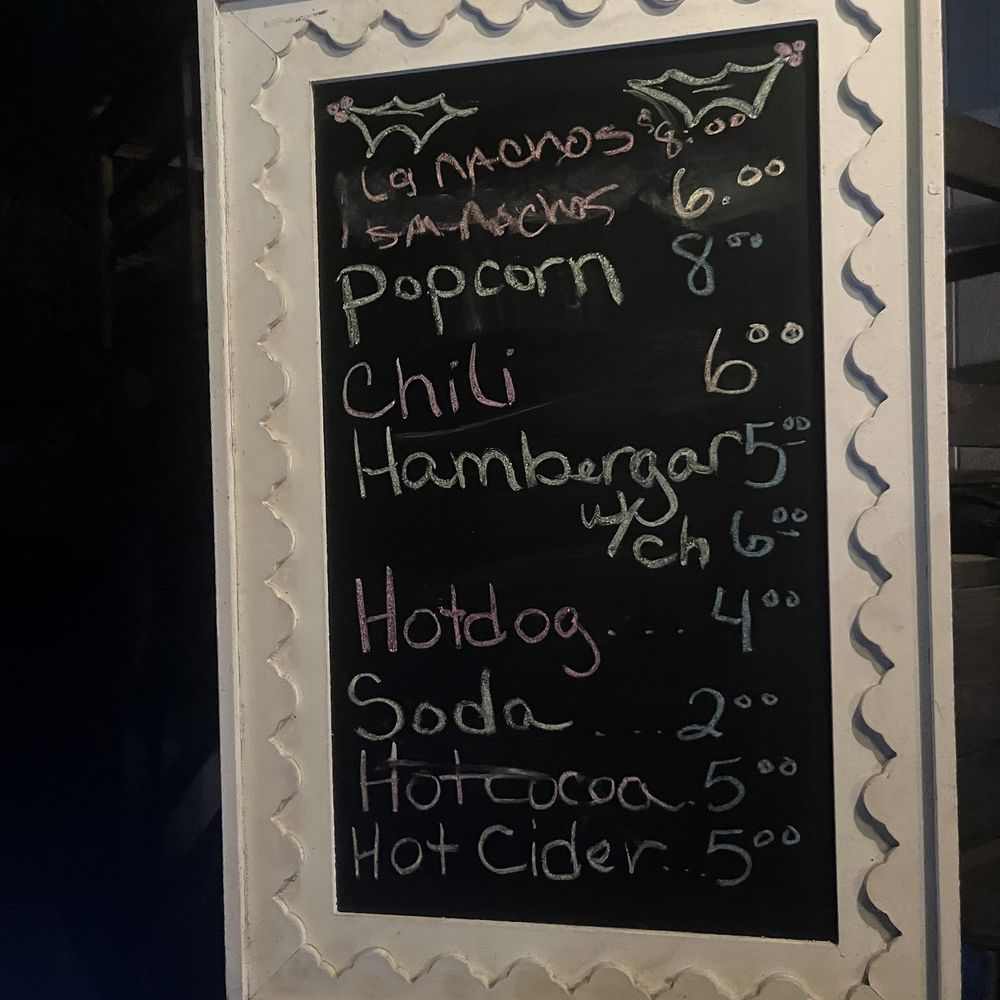 Lg NAChOS $8.00
SM NAChOS 6.00
Popcorn 8 00
Chili 6 00
Hambergar 5 00
w/ ch 6 00
Hotdog .... 4 00
Soda .... 2 00
Hot cocoa . 5 00
Hot Cider ... 5 00